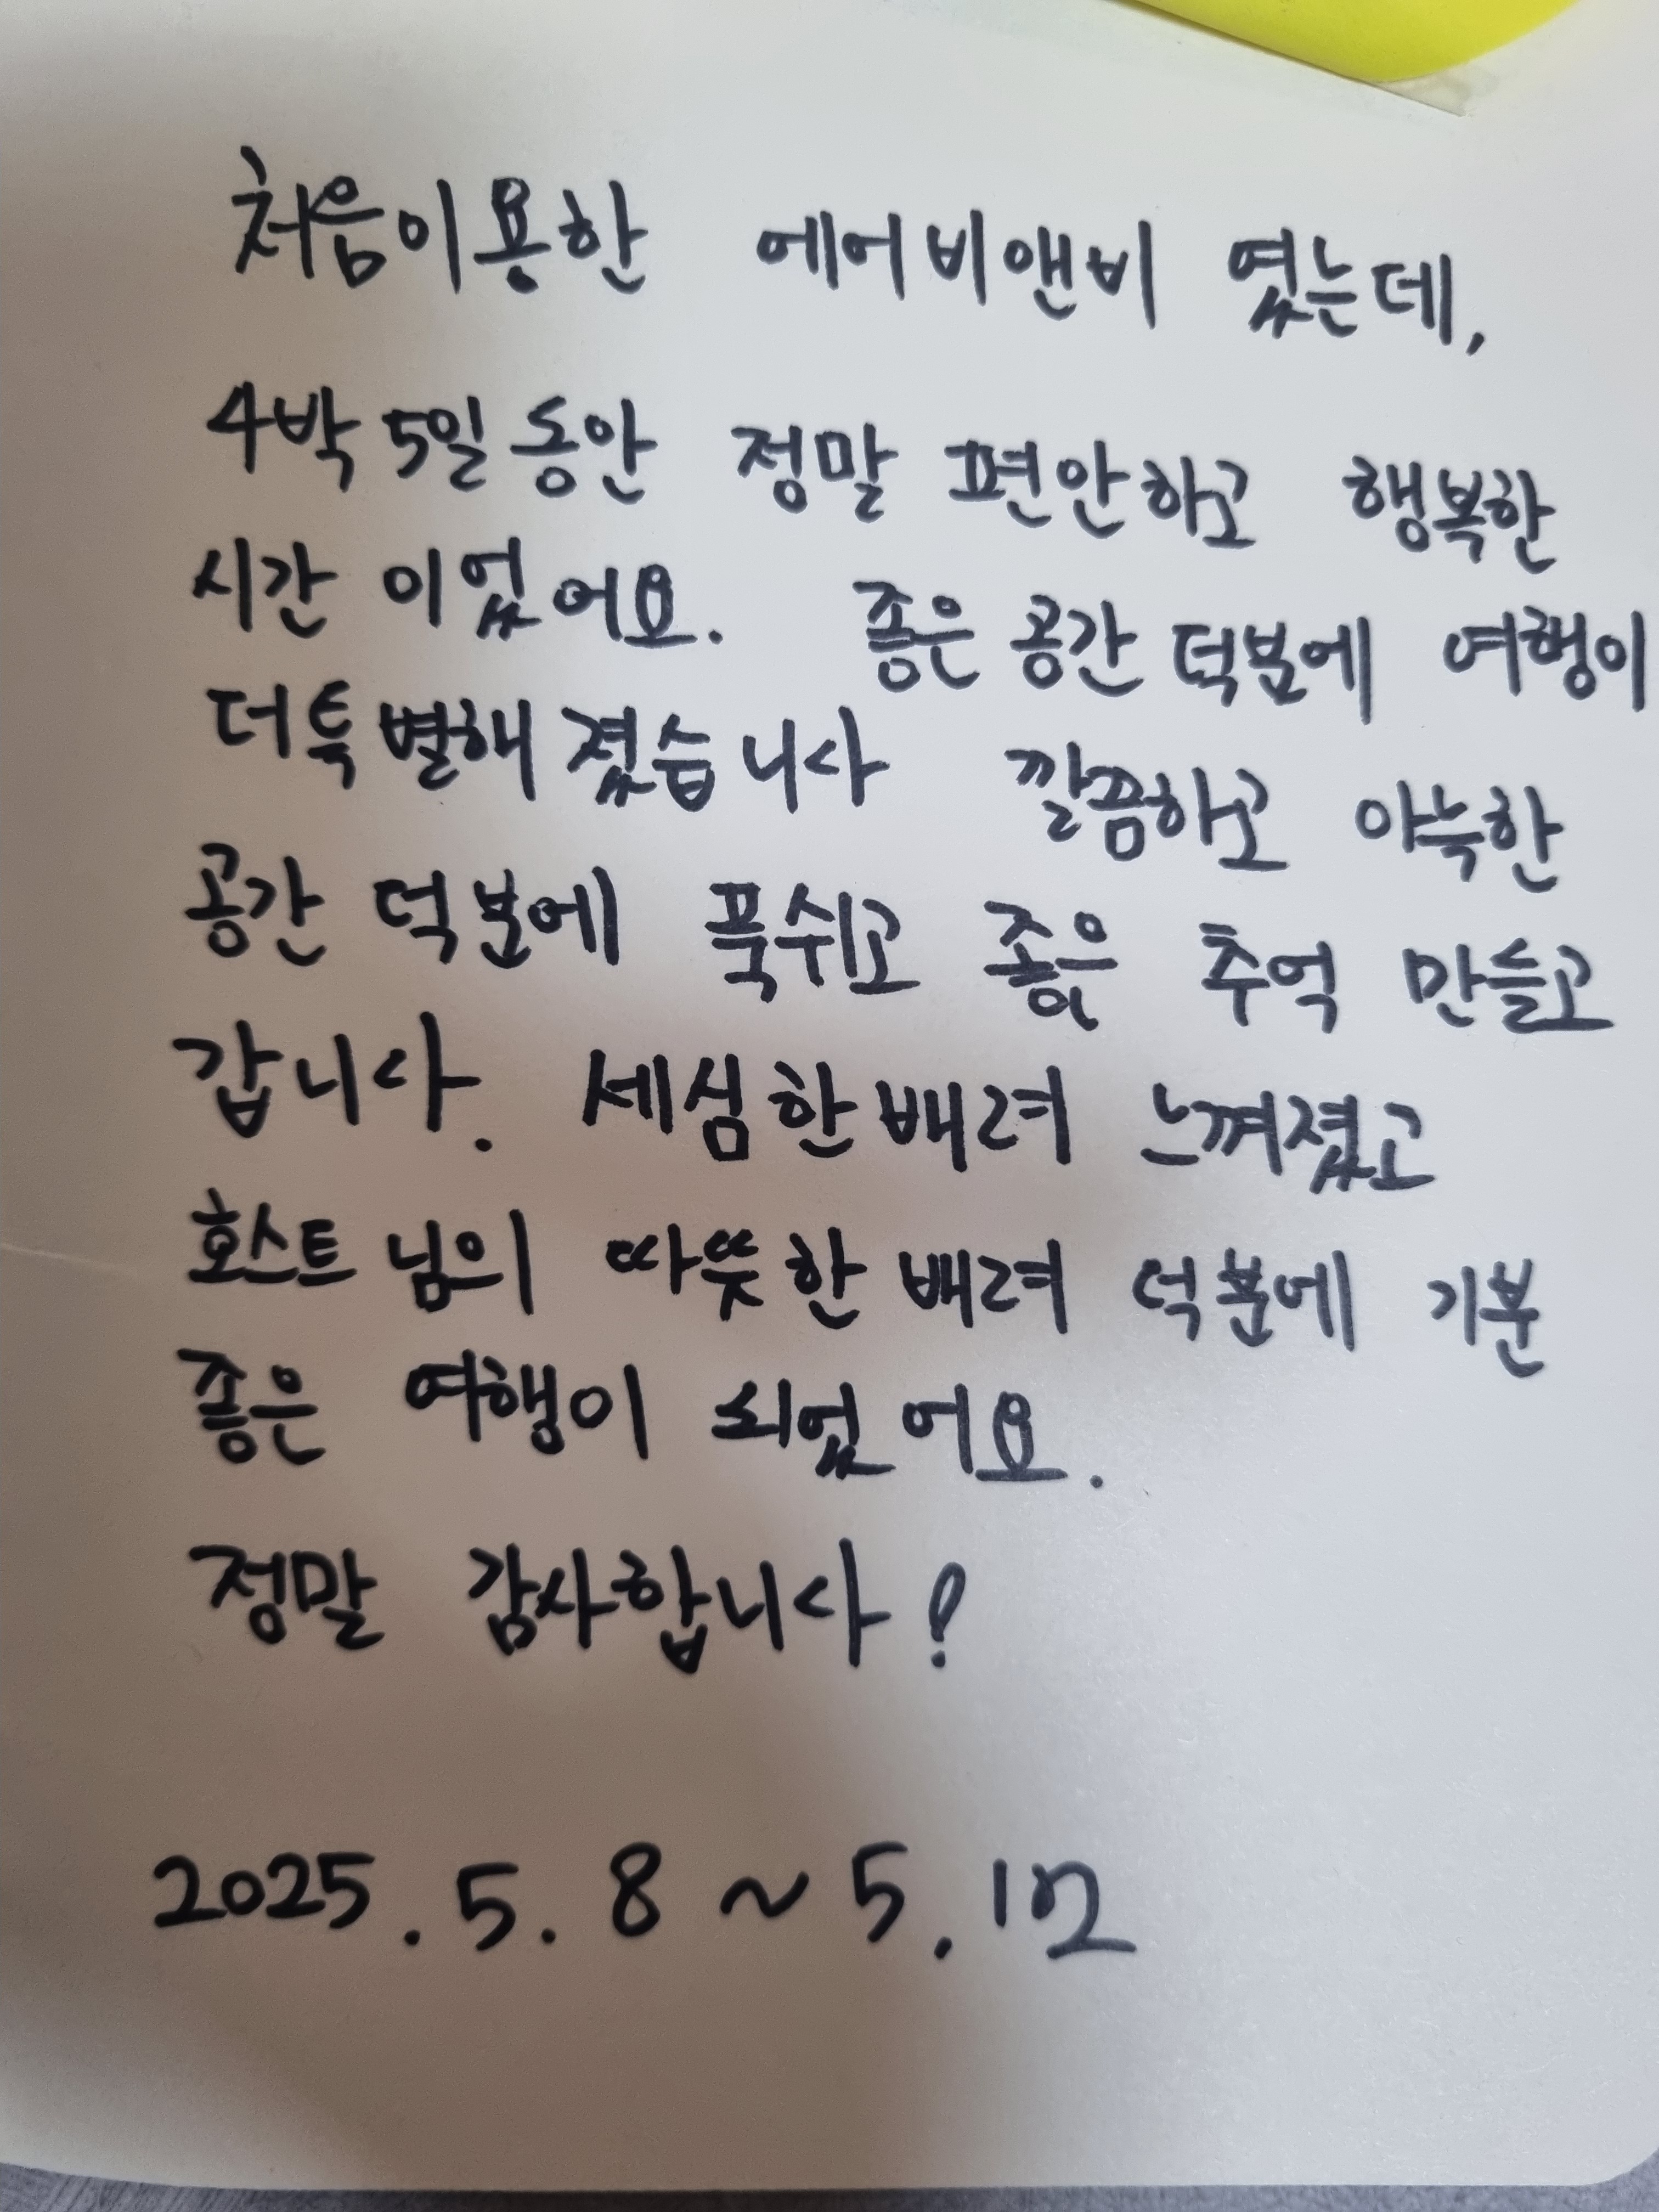 처음이용한 에어비앤비 였는데,
4박 5일 동안 정말 편안하고 행복한
시간 이었어요. 좋은 공간 덕분에 여행이
더 특별해 졌습니다 깔끔하고 아늑한
공간 덕분에 푹쉬고 좋은 추억 만들고
갑니다. 세심한 배려 느껴졌고
호스트 님의 따뜻한 배려 덕분에 기분
좋은 여행이 되었어요.
정말 감사합니다!
2025. 5. 8 ~ 5. 12